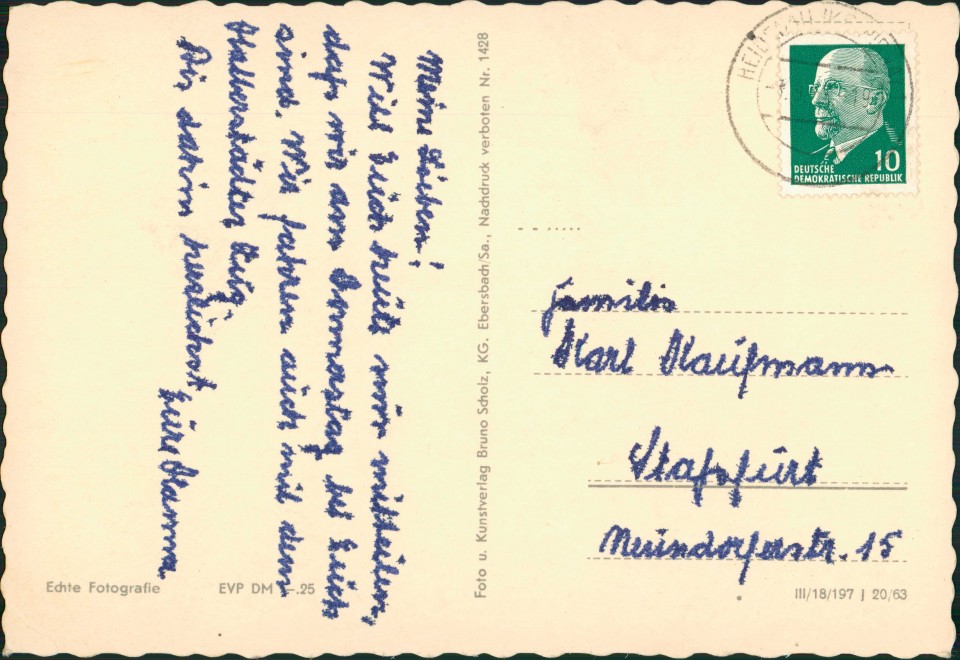 Meine Lieben!
Will Euch heute nur mitteilen,
daß wir am Donnerstag bei Euch
sind. Wir fahren auch mit dem
Halberstädter Zug.
Bis dahin herzlichst
Eure Hanna.
Echte Fotografie
EVP DM –.25
Foto u. Kunstverlag Bruno Scholz, KG. Ebersbach/Sa., Nachdruck verboten Nr. 1428
10
DEUTSCHE
DEMOKRATISCHE REPUBLIK
Familie
Karl Kaufmann
Staßfurt
Neundorferstr. 15
III/18/197 J 20/63